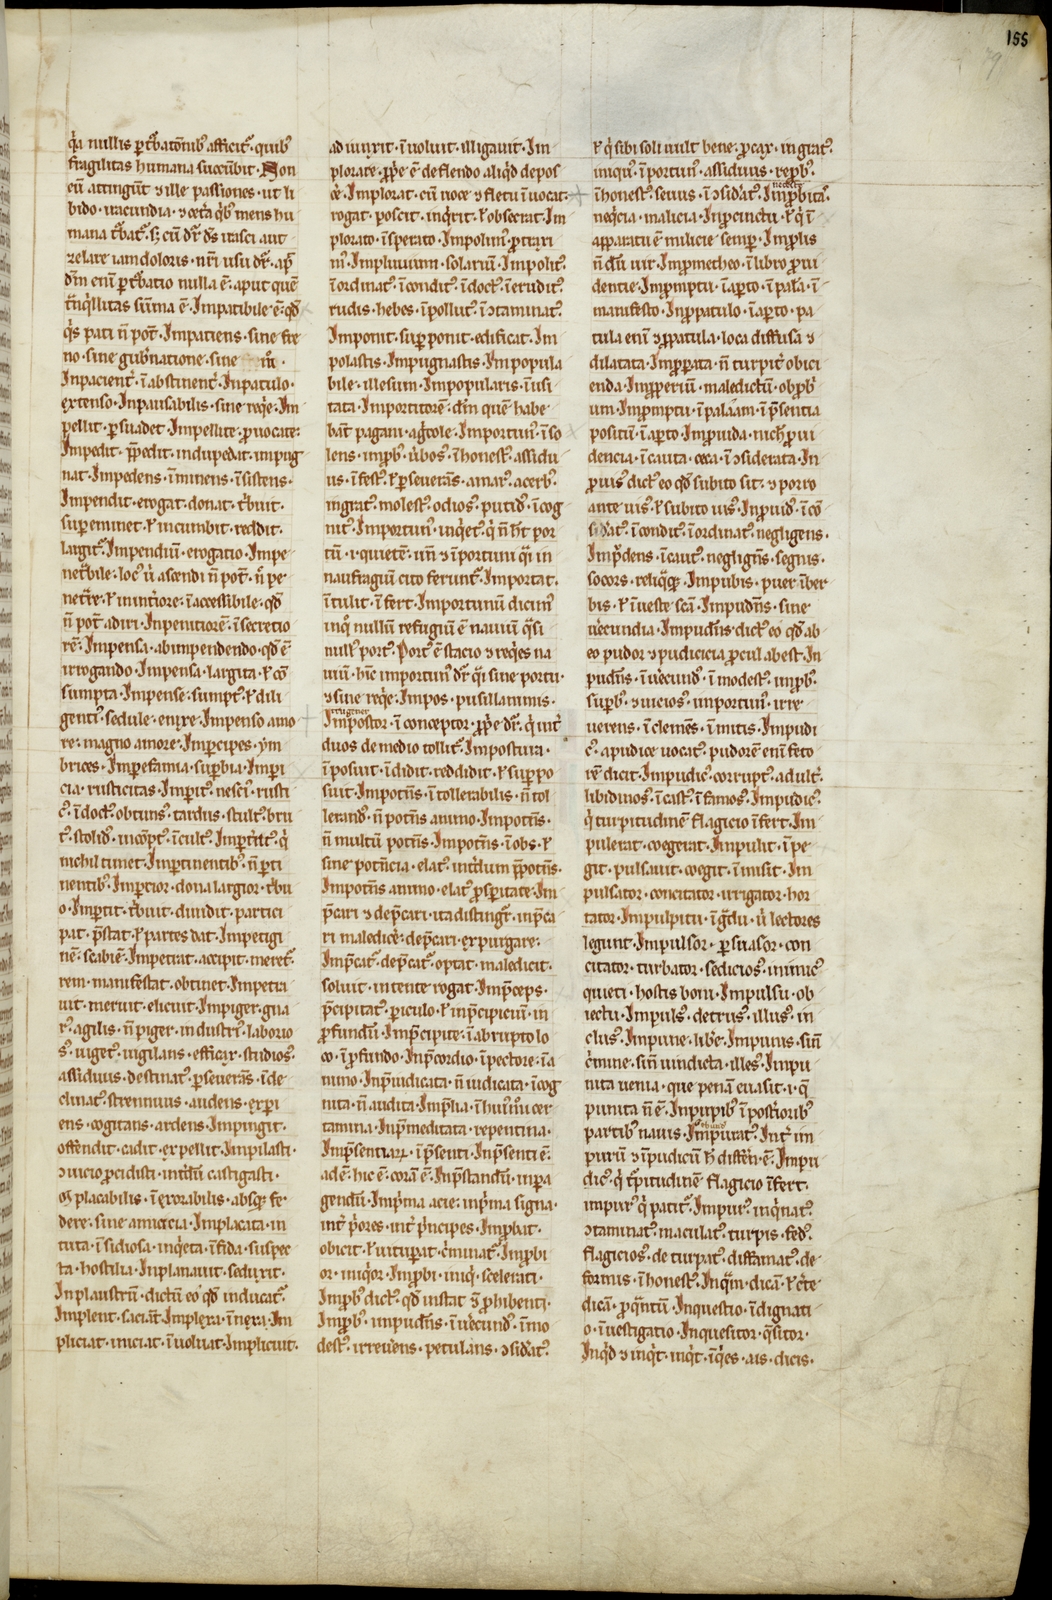 155
q̓a nullis ꝑt̓batōnibꝰ afficit᷑· quibꝰ
fragilitas humana succūbit· Non
eū attingūt ⁊ ille passiones· ut li
bido· iracundia· ⁊ cet̓a q̓bꝰ mens hu
mana t̓bat᷑· sꝫ cū dr̄ ds̄ irasci aut
zelare iam doloris· nr̄i usu dr̄· ap̄
dm̄ eni ꝑt̓batio nulla ē· aput quē
t̄nq̓llitas sūma ē· Impatibile ē· qđ
q̓s pati n̄ pot̄· Impatiens· sine fre
no· sine gub̓natione· sine
Inpacient̓· īabstinent̓· Inpatulo·
extenso· Inpausabilis· sine req̓e· Im
pellit· ꝑsuadet· Impellite· ꝓuocate·
Impedit· p̄pedit· indupedat· impug
nat· Impedens· īminens· īsistens·
Impendit· erogat· donat· t̓buit·
suꝑeminet· ł incumbit· reddit·
largit᷑· Impendiū· erogatio· Impe
net̓bile· locꝰ ū ascendi n̄ pot̄· n̄ pe
net̓re· ł in int̓iore· īaccessibile· qđ
n̄ pot̄ adiri· Inpenitiorē· īsecretio
rē· Impensa· ab impendendo· qđ ē
irrogando· Impensa· largita· ł cō
sumpta· Impense· sumptꝰ· ł dili
gent̓· sedule· enixe· Impenso amo
re· magno amore· Imꝑcipes· ym
brices· Imꝑefamia· suꝑbia· Imꝑi
cia· rusticitas· Imꝑitꝰ· nesciꝰ· rusti
cꝰ· īdoctꝰ· obtunsꝰ· tardus· stultꝰ· bru
tꝰ· stolidꝰ· incōptꝰ· īcultꝰ· Imꝑt̓ritꝰ· q̓
nichil timet· Imꝑtinentibꝰ· n̄ ꝑti
nentibꝰ· Imꝑtior· dona largior· t̓bu
o· Imꝑtit· t̓buit· diuidit· partici
pat· p̄stat· ł partes dat· Impetigi
nē· scabiē· Impetrat· accipit· meret᷑·
rem· manifestat· obtinet· Impetra
uit· meruit· elicuit· Impiger· gna
rꝰ· agilis· n̄ piger· industrꝰ· laborio
sꝰ· uigetꝰ· uigilans· efficax· studiosꝰ·
assiduus· destinatꝰ· ꝑseuerās· īde
clinatꝰ· strennuus· audens· exꝑi
ens· cogitans· ardens· Impingit·
offendit· cadit· expellit· Impilasti·
ꝯuicio ꝓcidisti· int̓dū castigasti·
placabilis· īexorabilis· absqꝫ fe
dere· sine amicicia· Implacata· in
tuta· īsidiosa· inq̓eta· īfida· suspec
ta· hostilia· Inplanauit· seduxit·
Inplaustrū· dictū eo qđ inducat᷑·
Implent· saciāt· Implexa· īnexa· Im
pliciat· iniciat· īuoluat· Implicuit·
ad iunxit· īuoluit· illigauit· Im
plorate· ꝓp̓e ē deflendo aliq̓d depos
c̓e· Implorat· cū uoce ⁊ fletu īuocat·
rogat· poscit· inq̓rit· ł obsecrat· Im
plorato· īsperato· Impolim̄· ꝓtraxi
mꝰ· Impluuium· solariū· Impolitꝰ·
īordinatꝰ· īconditꝰ· īdoctꝰ· īeruditꝰ·
rudis· hebes· īpollutꝰ· īꝯtaminatꝰ·
Imponit· suꝑponit· edificat· Im
polastis· Impugnastis· Impopula
bile· illesum· Impopularis· īusi
tata· Importitorē· dm̄ quē habe
bāt pagani· ag̓cole· Importunꝰ· īso
lens· improbꝰ· ūbosꝰ· īhonestꝰ· assidu
us· īfestꝰ· ł ꝑseuerās· amarꝰ· acerbꝰ·
ingratꝰ· molestꝰ· odiosꝰ· putidꝰ· īcog
nitꝰ· Importunꝰ· inq̓etꝰ· q̓ n̄ ht̄ por
tū· i· quietē· un̄ ⁊ īportuni q̄i in
naufragiū cito ferunt᷑· Importat·
ītulit· īfert· Importunū dicimꝰ
inq̓ nullū refugiū ē nauiū q̄si
nullꝰ portꝰ· Portꝰ ē stacio ⁊ req̓es na
uiū· hīc importunꝰ dr̄ q̄i sine portu·
⁊ sine req̓e· Impos· pusillanimis·
Impostor· īconceptor· ꝓp̓e dr̄· q̓ uit̄
duos de medio tollit᷑· Impostura·
īposuit· īdidit· reddidit· ł suꝑpo
suit· Impotn̄s· ītollerabilis· n̄ tol
lerandꝰ· n̄ potn̄s animo· Impotn̄s·
n̄ multū potn̄s· Impotn̄s· īobs· ł
sine potn̄cia· elatꝰ· int̓dum p̄potn̄s·
Impotn̄s animo· elatꝰ ꝓsꝑitate· Im
p̄cari ⁊ dep̄cari· ita distingt᷑· inp̄ca
ri maledic̓e· dep̄cari· expurgare·
Imp̄cat᷑· dep̄cat᷑· optat· maledicit·
soluit· intente rogat· Imp̄ceps·
p̄cipitatꝰ· ꝑiculo· ł inp̄cipiciū· in
ꝓfundū· Imp̄cipite· īabrupto lo
co· īꝓfundo· Inp̄cordio· īpectore· īa
nimo· Inp̄iudicata· n̄ iudicata· īcog
nita· n̄ audita· Imp̄lia· īhumū cer
tamina· Inp̄meditata· repentina·
Imp̄sentiarꝝ· īp̄senti· Inp̄senti ē·
adē· hic ē· corā ē· Inp̄standū· inpa
gendū· Inp̓ma acie· inp̓ma signa·
int̓ p̓ores· int̓ p̓ncipes· Imꝓbat·
obicit· ł uituꝑat· c̓minat᷑· Imꝓbi
or· iniq̓or· Imꝓbi· iniq̓· scelerati·
Imꝓbꝰ dictꝰ· qđ instat ꝓhibenti·
Imꝓbꝰ· impudn̄s· īu̓ecundꝰ· īmo
destꝰ· irreu̓ens· petulans· ꝯsid̓atꝰ·
ł q̓ sibi soli uult bene· ꝓcax· ingratꝰ·
iniqꝰ· īportunꝰ· assiduus· reꝓbꝰ·
īhonestꝰ· seuus· īꝯsid̓atꝰ· Imꝓbitaꝰ·
neq̓cia· malicia· Inꝓcinctu· ł q̓ ī
apparatu ē milicie semꝑ· Imꝓlis
n̄ dū uir· Imꝓmetheo· īlibro ꝓui
dentie· Imꝓmptu· īaꝑto· īpala· ī
manifesto· Inꝓpatulo· īaꝑto· pa
tula eni ⁊ ꝓpatula· loca diffusa ⁊
dilatata· Imꝓpata· n̄ turpit̓ obici
enda· Imꝓperiū· maledictū· obꝓbri
um· Imꝓmptu· īpalam· īp̄sentia
positū· īaꝑto· Imꝓuida· nich̓ ꝓui
dencia· īcauta· ceca· īꝯsiderata· In
ꝓuisꝰ dictꝰ eo qđ subito sit· ⁊ porro
ante uisꝰ· ł subito uisꝰ· Inꝓuidꝰ· īcō
sid̓atꝰ· īconditꝰ· īordinatꝰ· negligens·
Imp̓dens· īcautꝰ· negligēs· segnis·
socors· reliq̓qꝫ· Impubis· puer īber
bis· ł īueste scā· Impudn̄s· sine
u̓ecundia· Impudn̄s dictꝰ eo qđ ab
eo pudor ⁊ pudicicia ꝓcul abest· In
pudn̄s· īu̓ecundꝰ· īmodestꝰ· imꝓbꝰ·
suꝑbꝰ· ⁊ uiciosꝰ· inportunꝰ· irre
uerens· īclemēs· īmitis· Impudi
cꝰ· apudice uocat᷑· pudorē eni feto
rē dicit· Impudicꝰ· corruptꝰ· adult̓·
libidinosꝰ· īcastꝰ· īfamosꝰ· Impudicꝰ·
q̓ turpitudinē flagicio īfert· Im
pulerat· coegerat· Impulit· īpe
git· pulsauit· coegit· īmisit· Im
pulsator· concitator· irrigator· hor
tator· Impulpitu· īg̓du· ū lectores
legunt· Impulsor· ꝑsuasor· con
citator· turbator· sediciosꝰ· inimicꝰ
quieti· hostis boni· Impulsu· ob
iectu· Impulsꝰ· detrusꝰ· illusꝰ· in
clusꝰ· Impune· lib̓e· Impunis· sin̄
c̓mine· sin̄ uindicta· illesꝰ· Impu
nita uenia· que penā euasit· i· q̄
punita n̄ ē· Inpupibꝰ· īpost̓ioribꝰ
partibꝰ nauis· Impuratꝰ· Int̓ im
purū ⁊ īpudicū h̄ differn̄ ē· Impu
dicꝰ· q̓ t̓pitudinē flagicio īfert·
impurꝰ q̓ patit᷑· Impurꝰ· inq̓natꝰ·
ꝯtaminatꝰ· maculatꝰ· turpis· fedꝰ·
flagiciosꝰ· deturpatꝰ· diffamatꝰ· de
formis· īhonestꝰ· Inq̄m· dicā· ł c̓te
dicā· ꝓq̄ntū· Inquestio· īdignati
o· īuestigatio· Inquesitor· q̄sitor·
Inq̓d ⁊ inq̓t· inq̓t· īq̓es· ais· dicis·